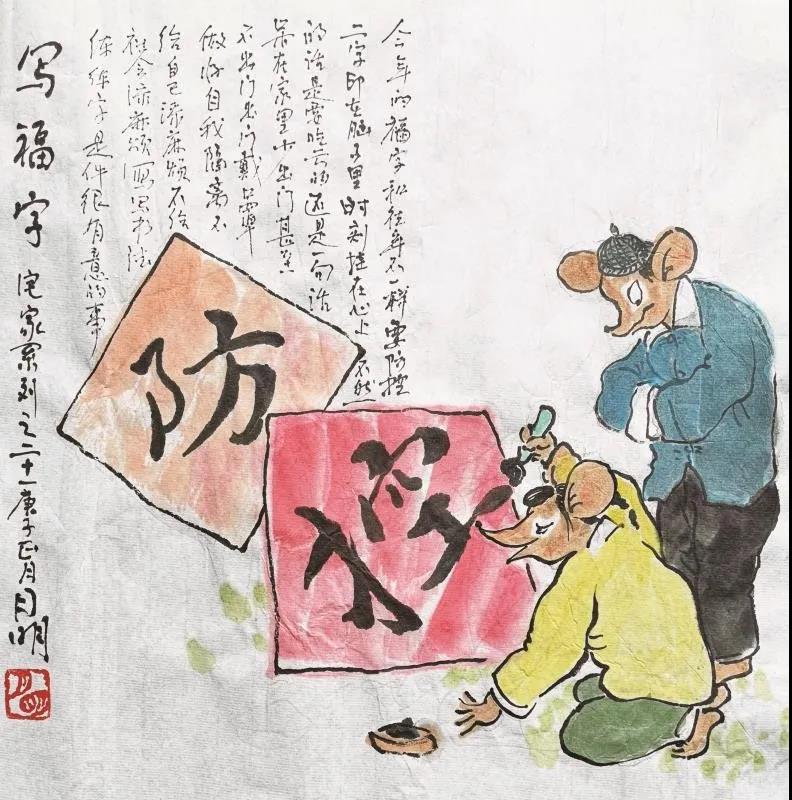 今年的福字和往年不一样要防控
二字印在脑子里时刻挂在心上不然
的话是要吃亏的还是一句话
呆在家里少出门甚至
不出门出门戴口罩
做好自我隔离不
给自己添麻烦不给
社会添麻烦写写书法
练练字是件很有意的事
写福字
宅家系列之二十一庚子正月
防